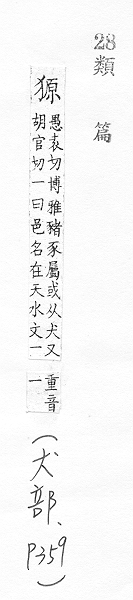 28
類篇
獂
愚袁切博雅豬豕屬或从犬又
胡官切一曰邑名在天水文一
重音
一
（犬部、
P359）